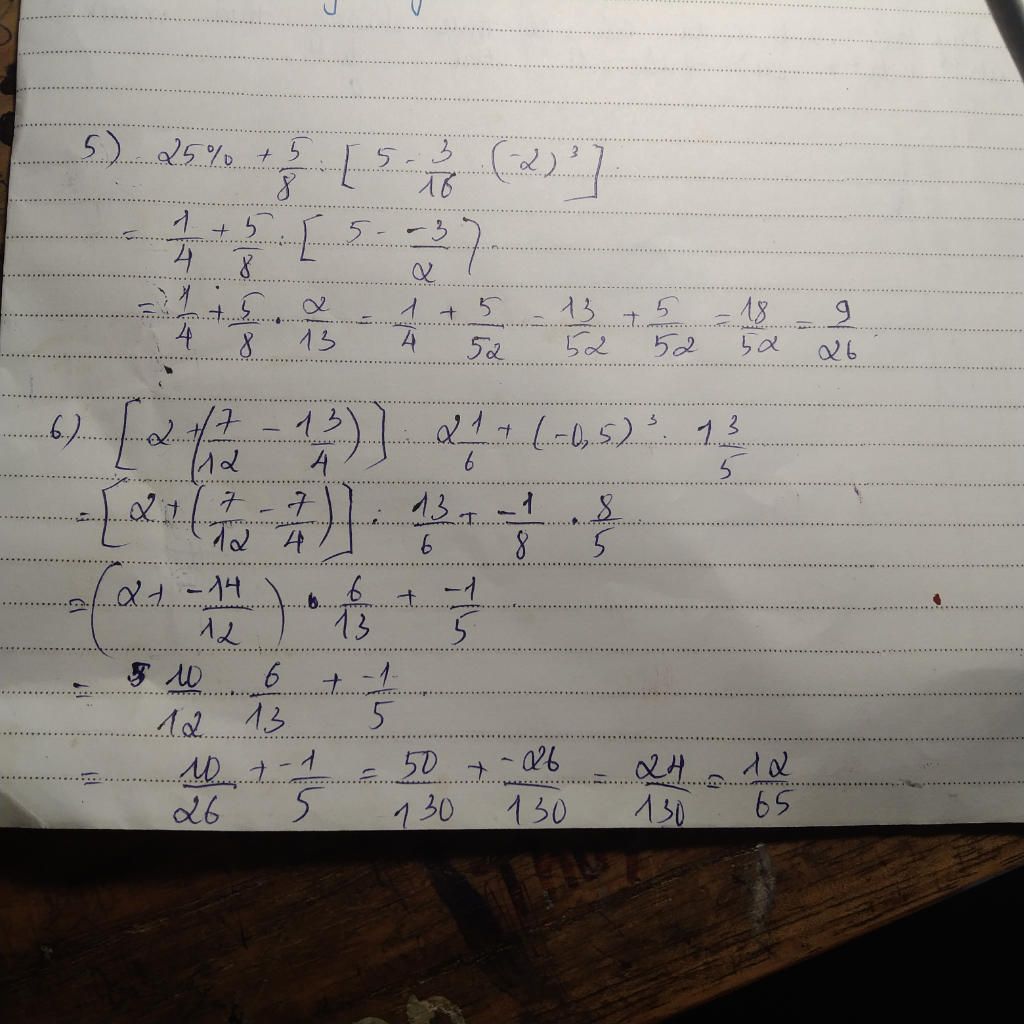 5) 25% + 5/8 : [ 5 - 3/16 . (-2)³ ]
= 1/4 + 5/8 : [ 5 - -3/2 ]
= 1/4 + 5/8 . 2/13 = 1/4 + 5/52 = 13/52 + 5/52 = 18/52 = 9/26
6) [ 2 + ( 7/12 - 1 3/4 ) ] : 2 1/6 + (-0,5)³ . 1 3/5
= [ 2 + ( 7/12 - 7/4 ) ] : 13/6 + -1/8 . 8/5
= ( 2 + -14/12 ) . 6/13 + -1/5
= 10/12 . 6/13 + -1/5
= 10/26 + -1/5 = 50/130 + -26/130 = 24/130 = 12/65